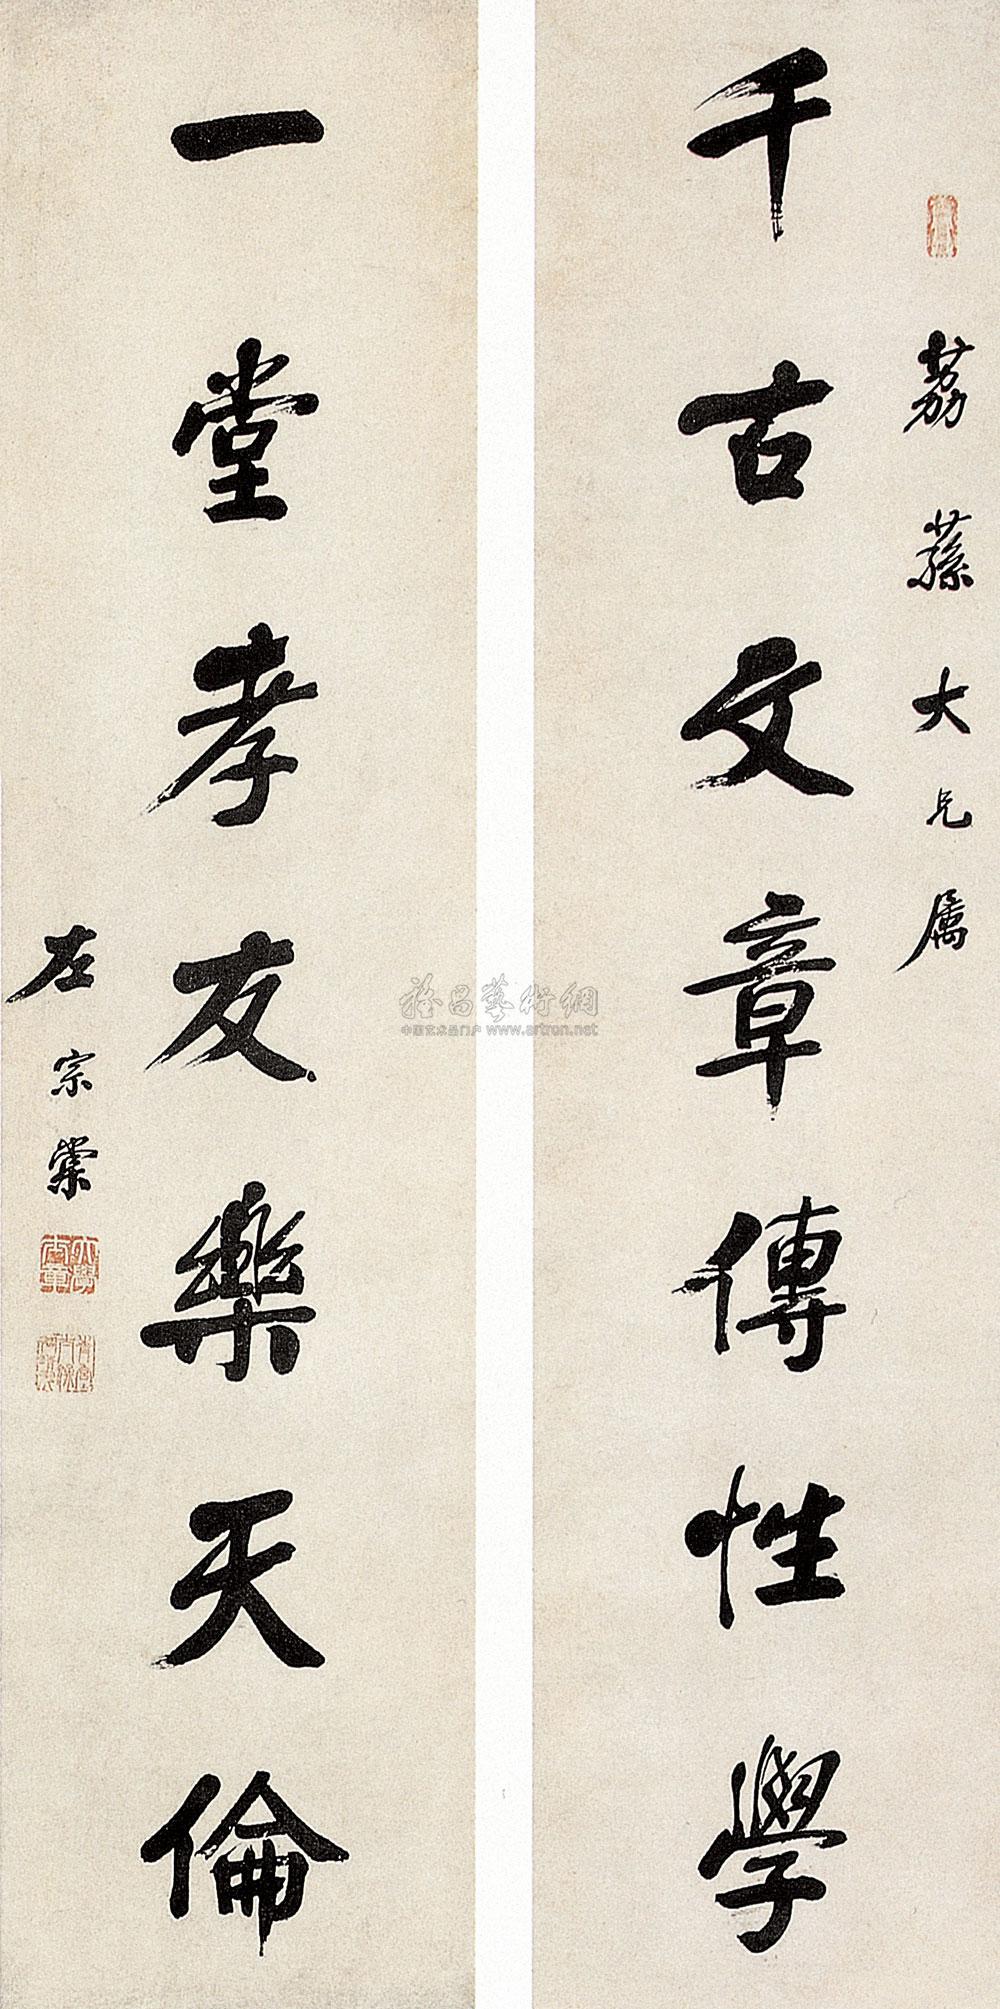 荔蓀大兄属
千古文章傳性學
一堂孝友樂天倫
左宗棠
雅昌藝術網
中国艺术品门户 www.artron.net